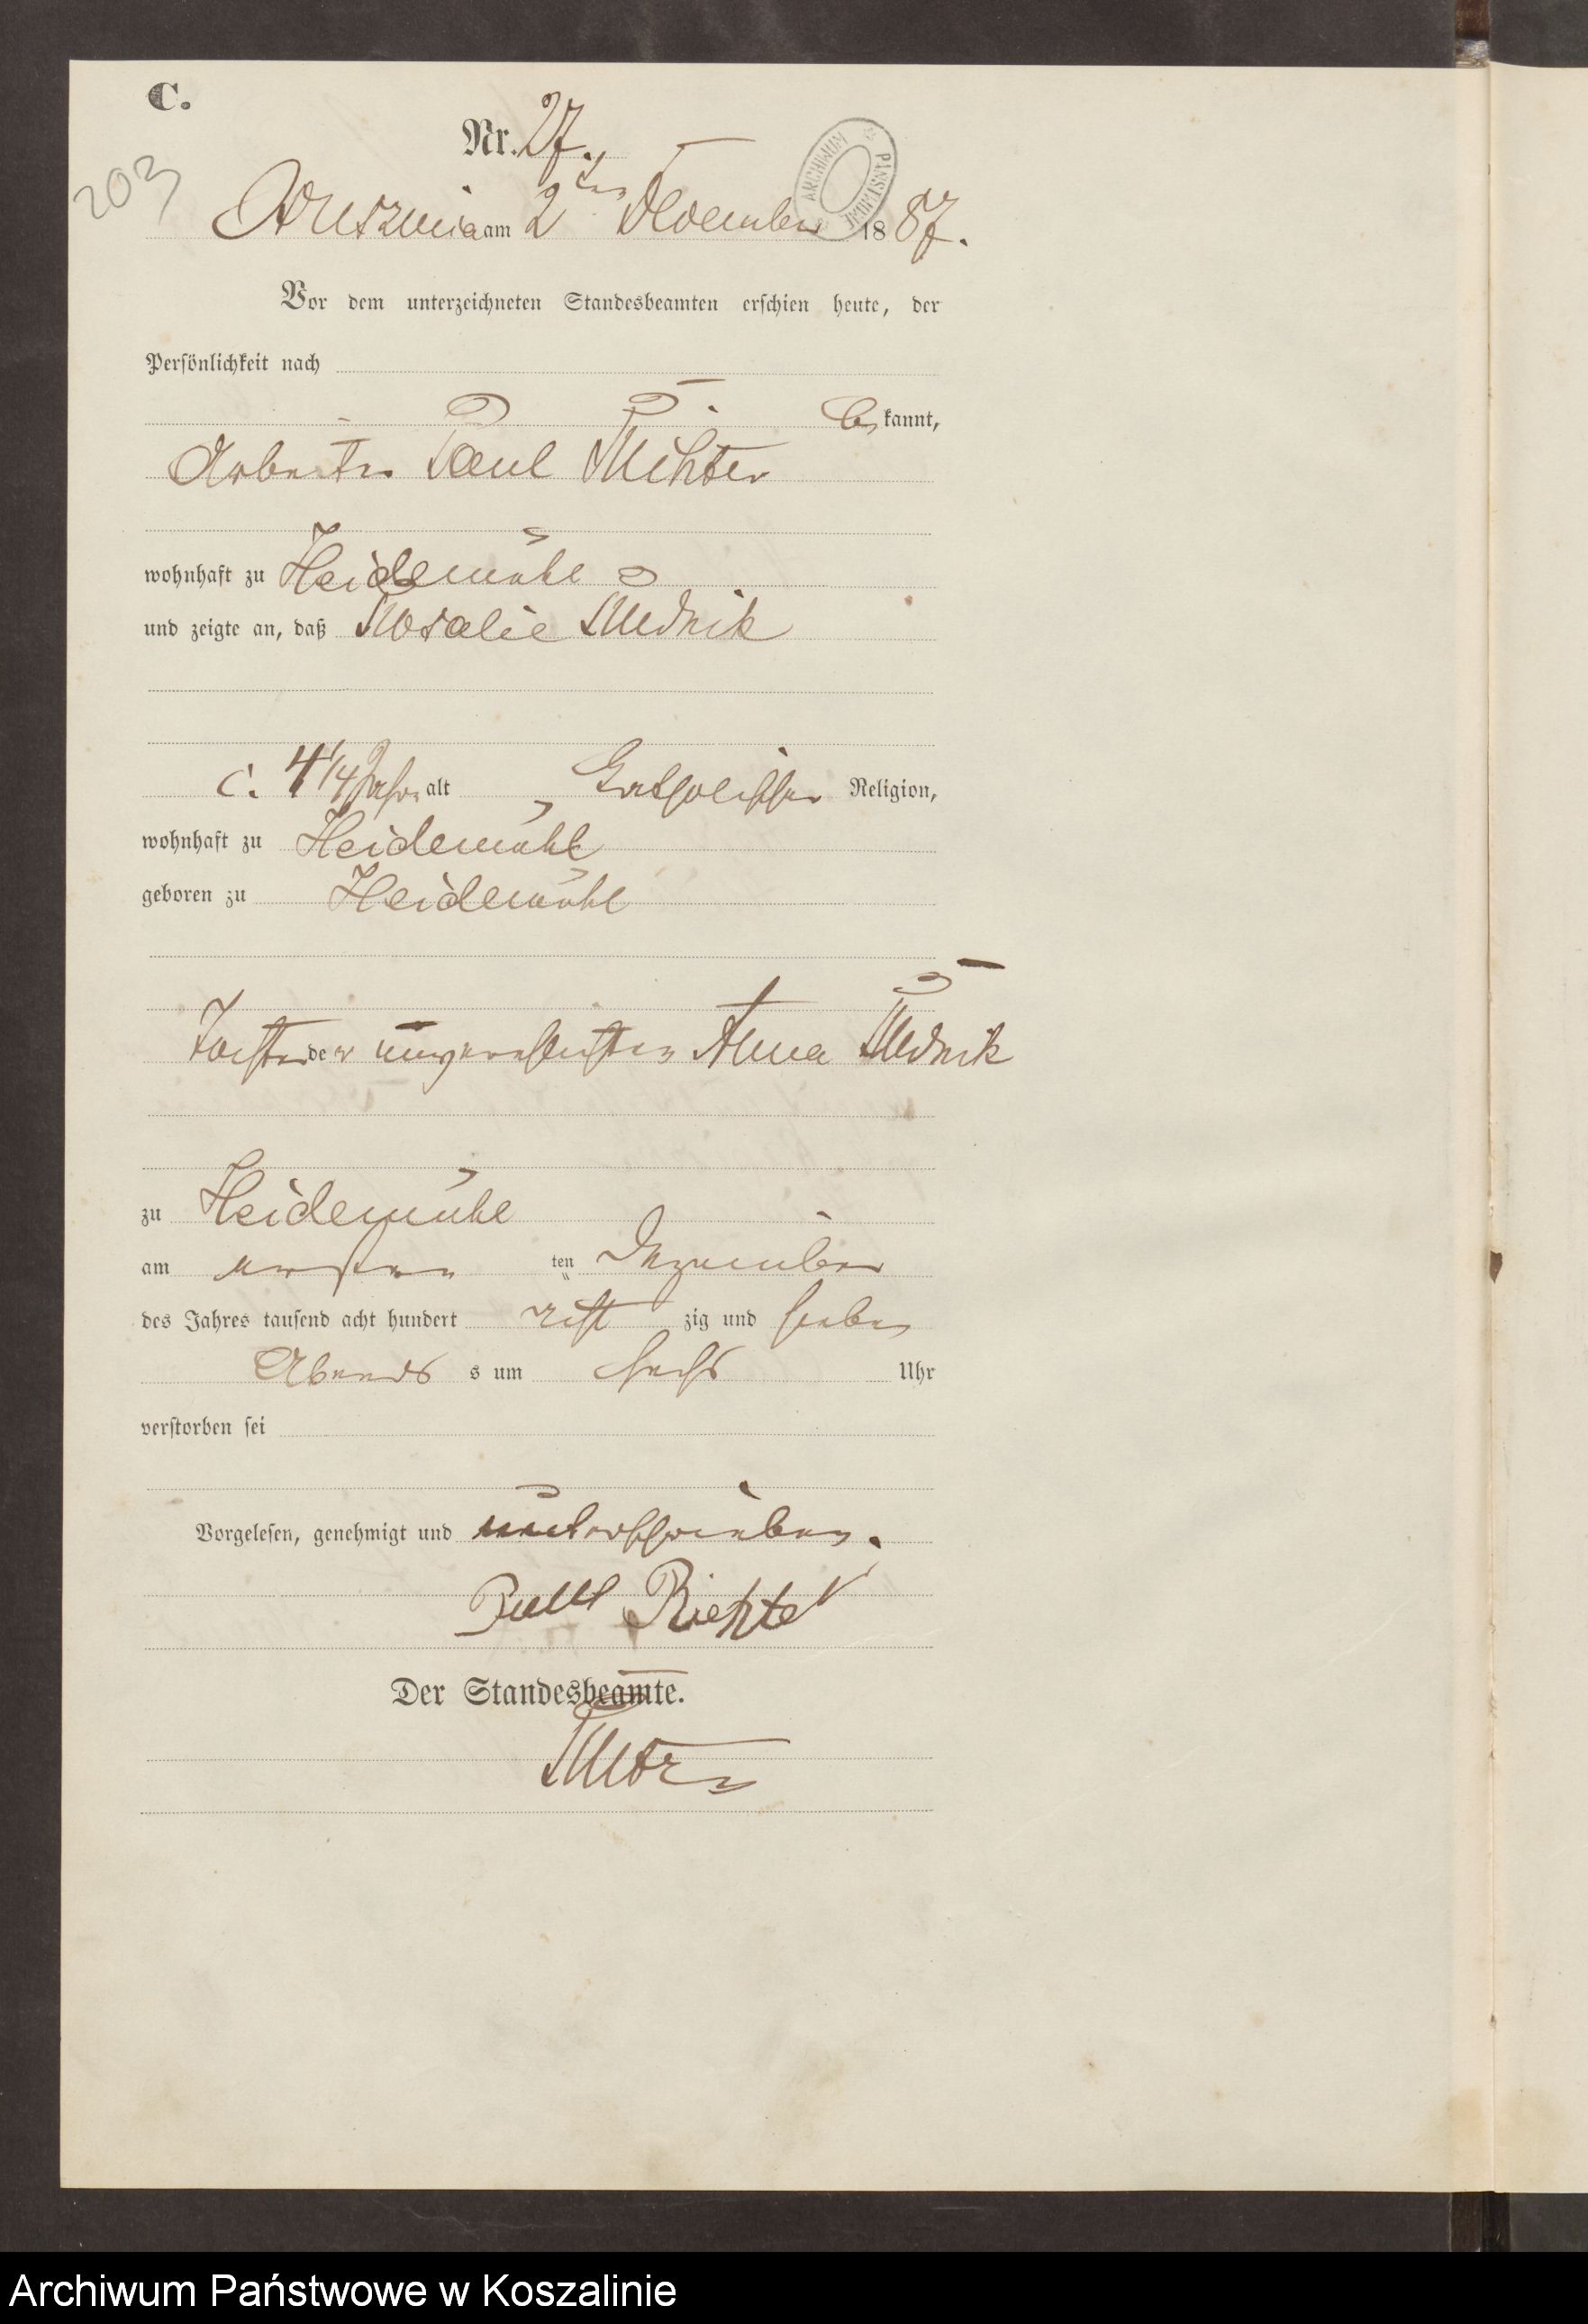 C.
Nr. 27.
203
am 2ten 1887.
ARCHIWUM PAŃSTWOWE
Vor dem unterzeichneten Standesbeamten erschien heute, der
Persönlichkeit nach
be kannt,
Arbeiter Paul Richter
wohnhaft zu Heidemühl
und zeigte an, daß Rosalie
c. 4 1/4 Jahr alt, katholischer Religion,
wohnhaft zu Heidemühl
geboren zu Heidemühl
Tochter der unverehelichten Anna
zu Heidemühl
am ersten ten Dezember
des Jahres tausend acht hundert acht zig und sieben
Abends s um sechs Uhr
verstorben sei
Vorgelesen, genehmigt und unterschrieben.
Paul Richter
Der Standesbeamte.
Archiwum Państwowe w Koszalinie